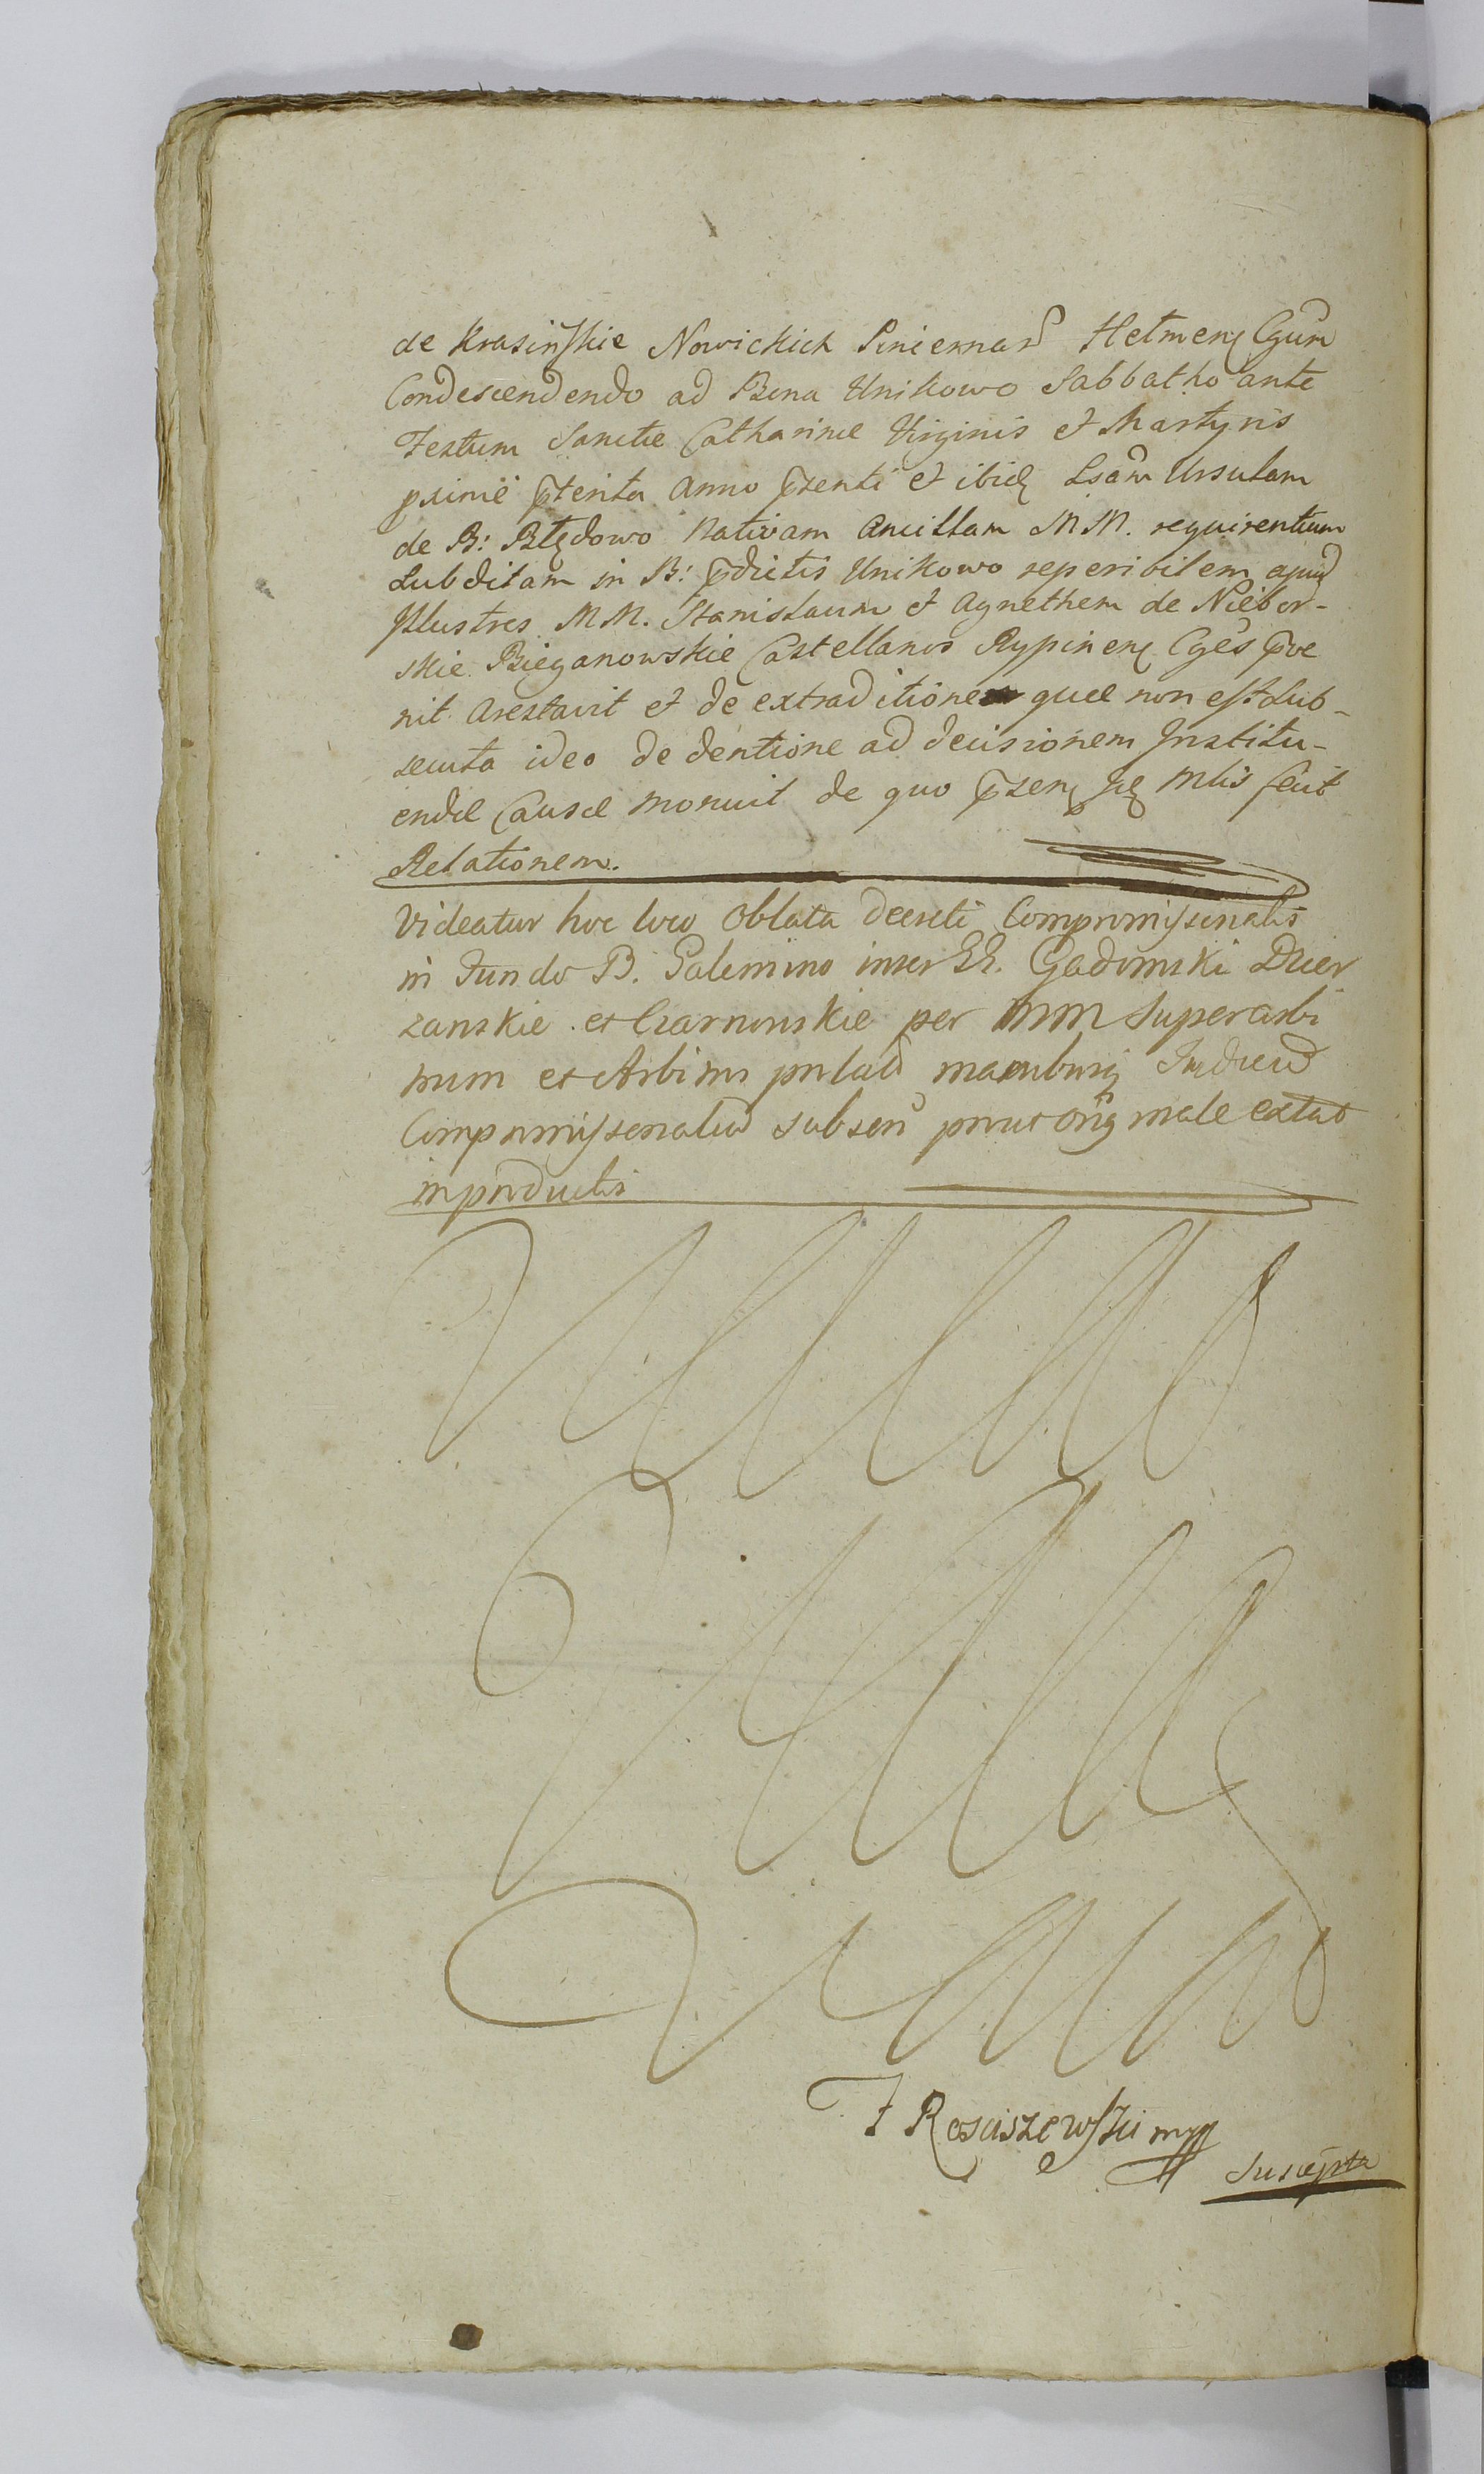 de Krasinskie Nowickich Pincernar Hetmen Cgum
Condescendendo ad Bona Unikowo Sabbatho ante
Festum Sanctæ Catharinæ Virginis et Martyris
pxime pterita Anno pzenti et ibid Lsam Ursulam
de B: Błędowo Nativam Ancillam MM. requirentium
Subditam in B: pdictis Unikowo reperibilem apud
Illustres MM. Stanislaum et Agnethem de Niebor-
skie Bieganowskie Castellanos Rypinen Cges pve
nit Arestavit et de extraditione quæ non est Sub-
secuta ideo de dentione ad decisionem Institu-
endæ Causæ monuit de quo pzen Mlis fecit
Relationem.
Videatur hoc loco Oblata Decreti Compromissorialis
in Fundo B. Galemino inter Gadomski Dzier
zanskie et Czarnomskie per MM Superarbi
trum et Arbitros manibus Judicu
Compromissorialiu subscri prout originale extat
in productis
F Rosciszewski mpp
Suscepta